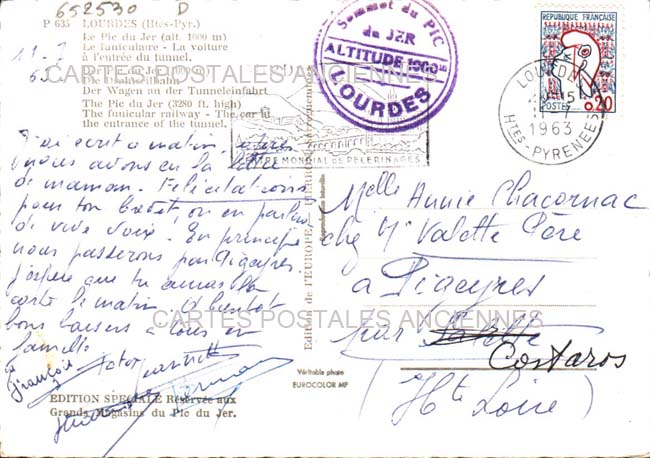 652530 D
P 635 LOURDES (Htes-Pyr.)
Le Pic du Jer (alt. 1000 m)
Le funiculaire - La voiture
à l'entrée du tunnel.
11-7
63
CARTES POSTALES ANCIENNES
Der Wagen an der Tunneleinfahrt
The Pic du Jer (3280 ft. high)
The funicular railway - The car at
the entrance of the tunnel.
Sommet du PIC
du JER
ALTITUDE 1000
LOURDES
CENTRE MONDIAL DE PELERINAGES
REPUBLIQUE FRANÇAISE
POSTES
0,20
LOURDES
15
1963
Htes-PYRENEES
J'ai écrit ce matin,
nous avons eu la lettre
de maman. Félicitations
pour ton brevet, on en parlera
de vive voix. En principe
nous passerons par Piageyres.
J'espère que tu auras la
carte le matin. A bientôt
bons baisers à tous en
famille
François
Totor
Jeannette
EDITION SPECIALE Réservée aux
Grands Magasins du Pic du Jer.
Edition de l'EUROPE
Reproduction interdite
Véritable photo
EUROCOLOR MP
Melle Annie Chacornac
chez Mr Valette Père
à Piageyres
par
Costaros
(Hte Loire)
CARTES POSTALES ANCIENNES